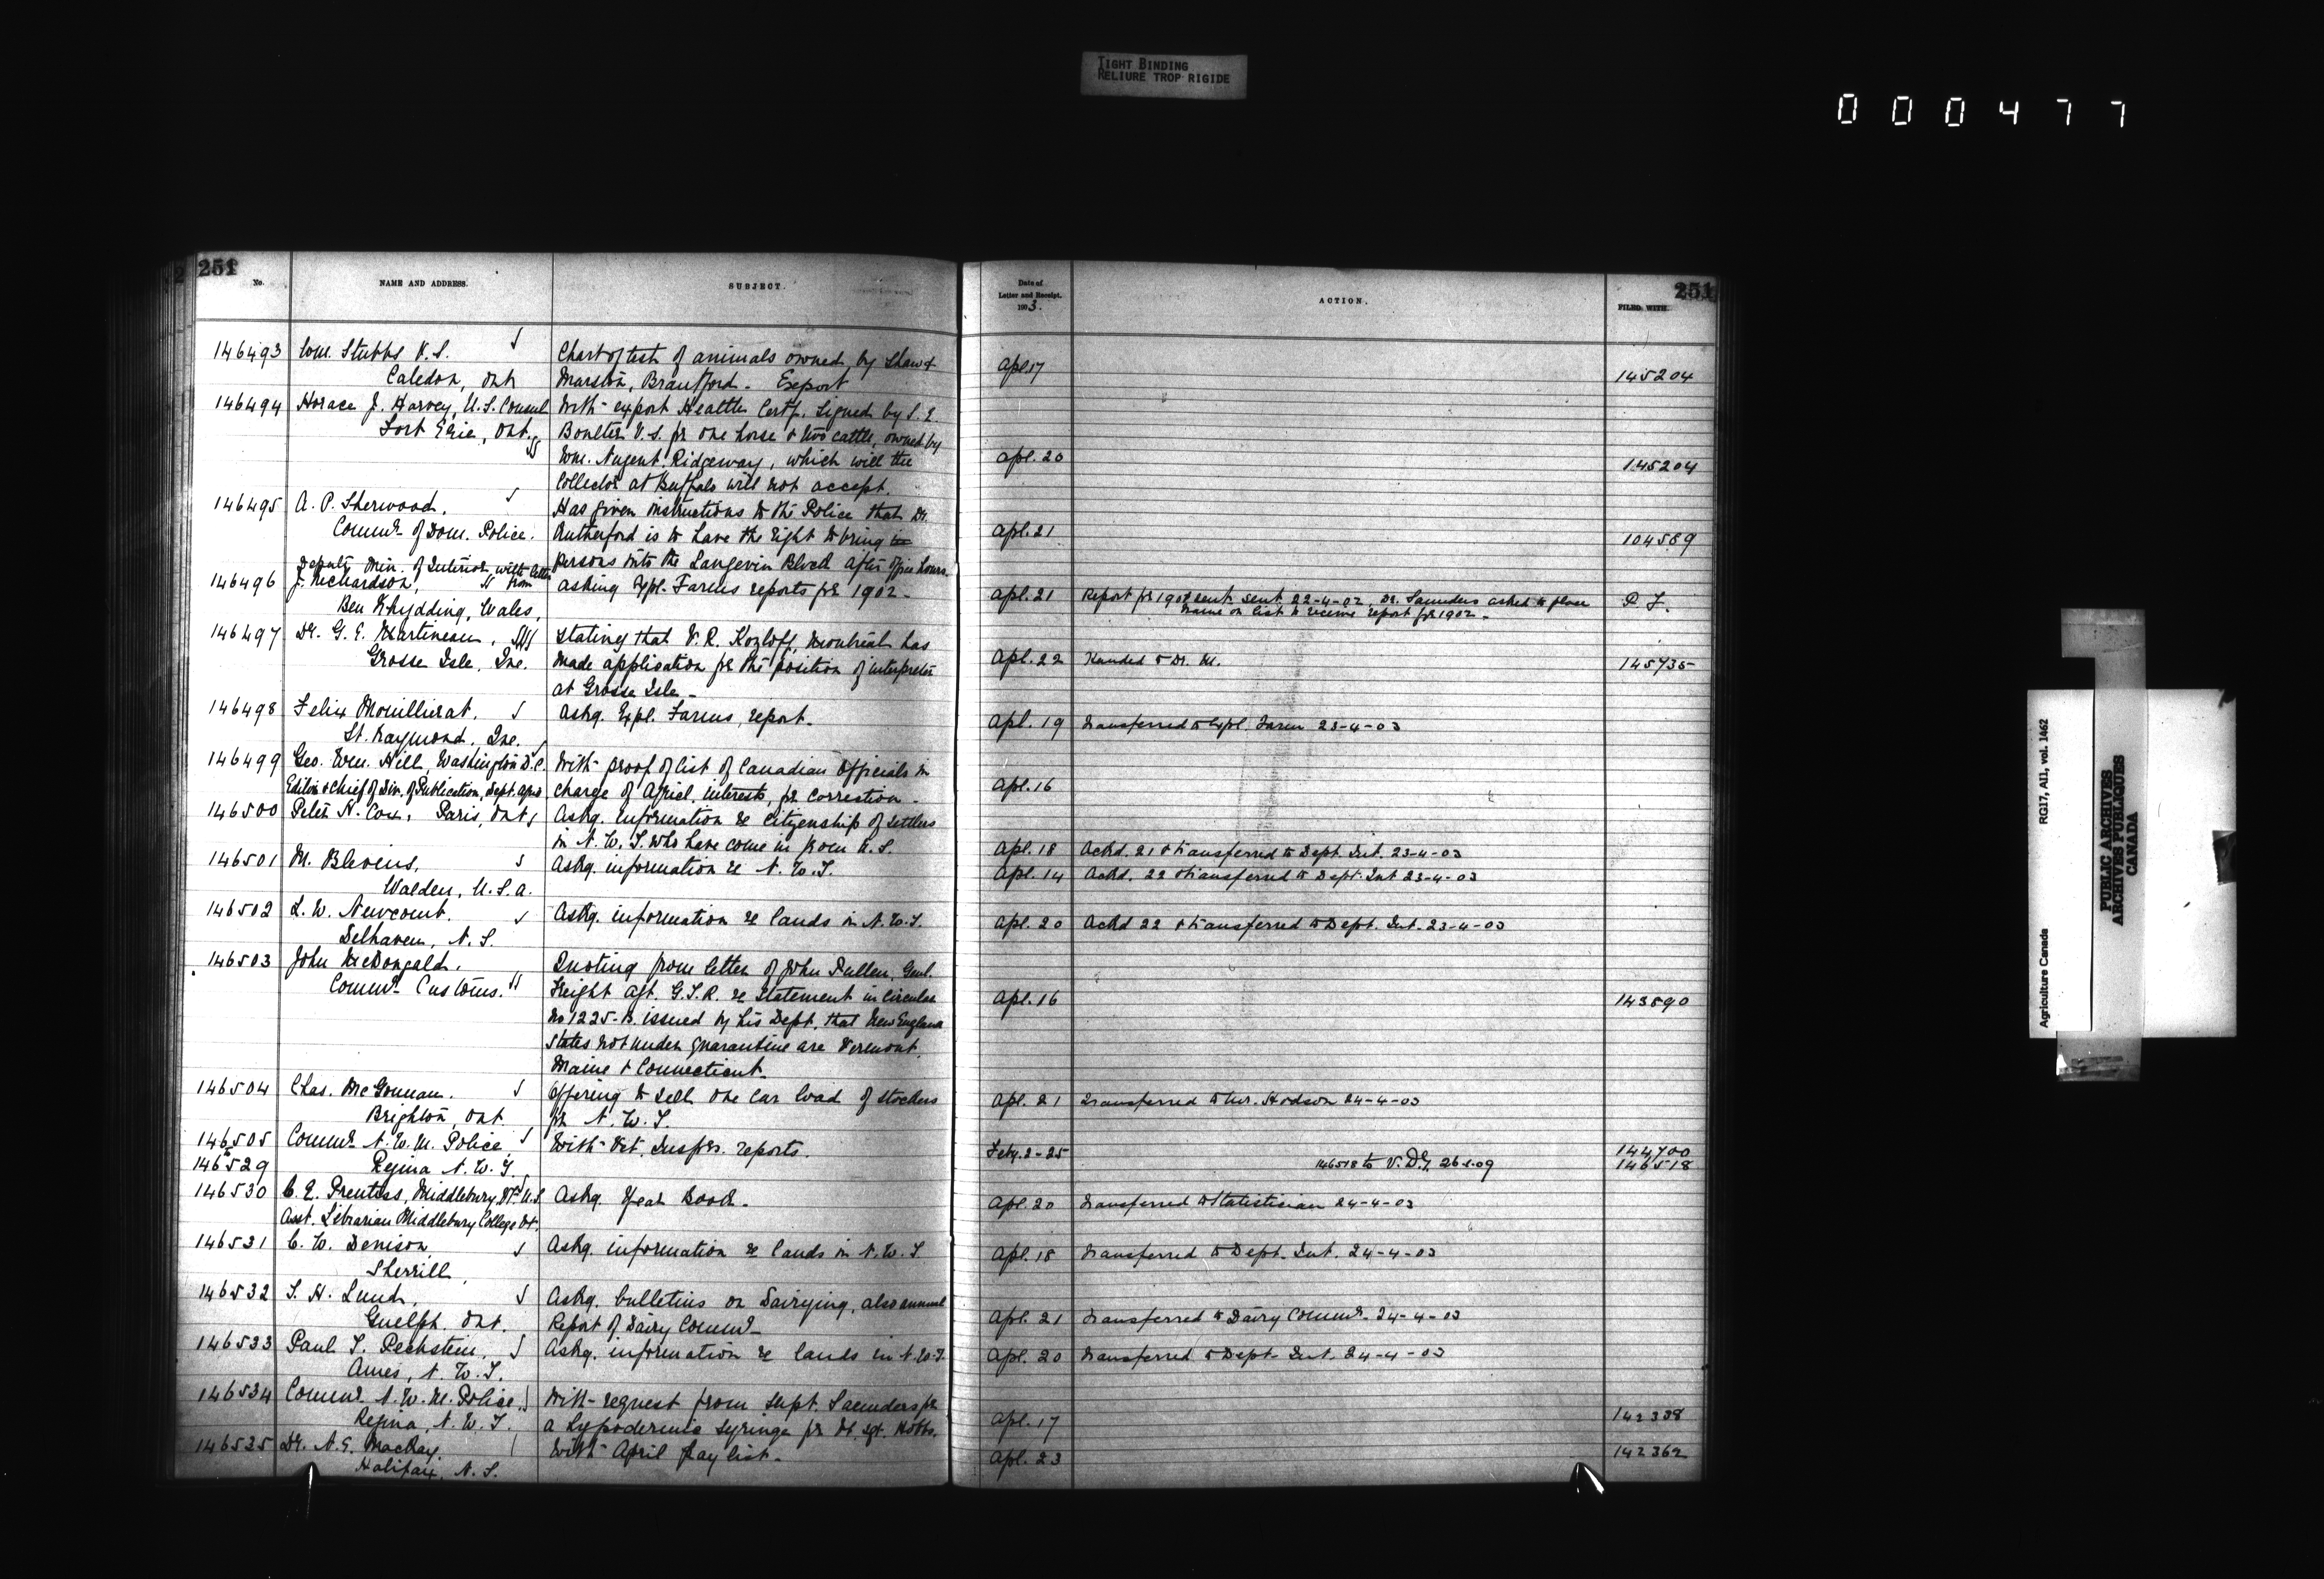 TIGHT BINDING
RELIURE TROP RIGIDE
000477
251
No.
NAME AND ADDRESS.
SUBJECT.
146493 Wm. Stubbs V.S. Chart of tests of animals owned by Shaw &
Caledon, Ont Marston, Brantford. Export
146494 Horace J. Harvey, U.S. Consul With export Health Certf. signed by S. E.
Fort Erie, Ont. Boulter V.S. for one horse & two cattle, owned by
Wm. Nugent, Ridgeway, which will the
Collector at Buffalo will not accept.
146495 A. P. Sherwood. Has given instructions to the Police that Dr.
Commr of Dom. Police. Rutherford is to have the right to bring
persons into the Langevin Block after office hours.
Deputy Min. of Interior with letter
146496 J. Richardson, from asking Expl. Farms reports for 1902.
Ben Rhydding, Wales,
146497 Dr. G. E. Martineau, Stating that V. R. Kozloff, Montreal has
Grosse Isle, Que. made application for the position of interpreter
at Grosse Isle.
146498 Felix Mouillierat. Askg. Expl. Farms, report.
St. Raymond, Que.
146499 Geo. Wm. Hill, Washington D.C. With proof of list of Canadian Officials in
Editor & Chief of Div. of Publication, Dept. Agrs charge of Agricl. interests, for correction.
146500 Peter N. Cox, Paris, Ont Askg. information re citizenship of settlers
in N.W.T. who have come in from U.S.
146501 M. Blevins, Askg. information re N.W.T.
Walden, U.S.A.
146502 L. W. Newcomb. Askg. information re lands in N.W.T.
Delhaven, N.S.
146503 John McDougald, Quoting from letter of John Pullen, Genl.
Commr Customs. Freight Agt. G.T.R. re statement in circular
No 1225-B. issued by his Dept. that New England
States not under quarantine are Vermont,
Maine & Connecticut.
146504 Chas. McGonnan. Offering to sell one car load of stockers
Brighton, Ont. for N.W.T.
146505 Commr N.W.M. Police, With Vet. Insprs. reports.
to
146529 Regina N.W.T.
146530 C. E. Prentiss, Middlebury, Vt. U.S. Askg. Year Book.
Asst. Librarian Middlebury College Vt.
146531 C. W. Denison, Askg. information re lands in N.W.T
Sherrill,
146532 T. H. Lund, Askg. bulletins on Dairying, also annual
Guelph, Ont. Report of Dairy Commr
146533 Paul T. Pechstein, Askg. information re lands in N.W.T.
Ames, N.W.T.
146534 Commr N.W.M. Police, With request from Supt. Saunders for
Regina, N.W.T. a hypodermic syringe for St. Sgt. Hobbs.
146535 Dr. N. E. MacKay. With April Pay list.
Halifax, N.S.
251
Date of
Letter and Receipt.
1903.
ACTION.
FILED WITH
Apl. 17 145204
Apl. 20 145204
Apl. 21 104589
Apl. 21 Report for 1901 sent sent 22-4-02. Dr. Saunders asked to place P.F.
name on list to receive report for 1902.
Apl. 22 Handed to Dr. M. 145735
Apl. 19 Transferred to Expl. Farm 23-4-03
Apl. 16
Apl. 18 Ackd. 21 & transferred to Dept. Int. 23-4-03
Apl. 14 Ackd. 22 & transferred to Dept. Int 23-4-03
Apl. 20 Ackd 22 & transferred to Dept. Int. 23-4-03
Apl. 16 143890
Apl. 21 Transferred to Mr. Hodson 24-4-03
Feby. 2-25 144700
146518 to V.D.G. 146518
Apl. 20 Transferred to Statistician 24-4-03
Apl. 18 Transferred to Dept. Int. 24-4-03
Apl. 21 Transferred to Dairy Commr. 24-4-03
Apl. 20 Transferred to Dept. Int. 24-4-03
Apl. 17 142338
Apl. 23 142362
Agriculture Canada
RG17, A11, vol. 1462
PUBLIC ARCHIVES
ARCHIVES PUBLIQUES
CANADA